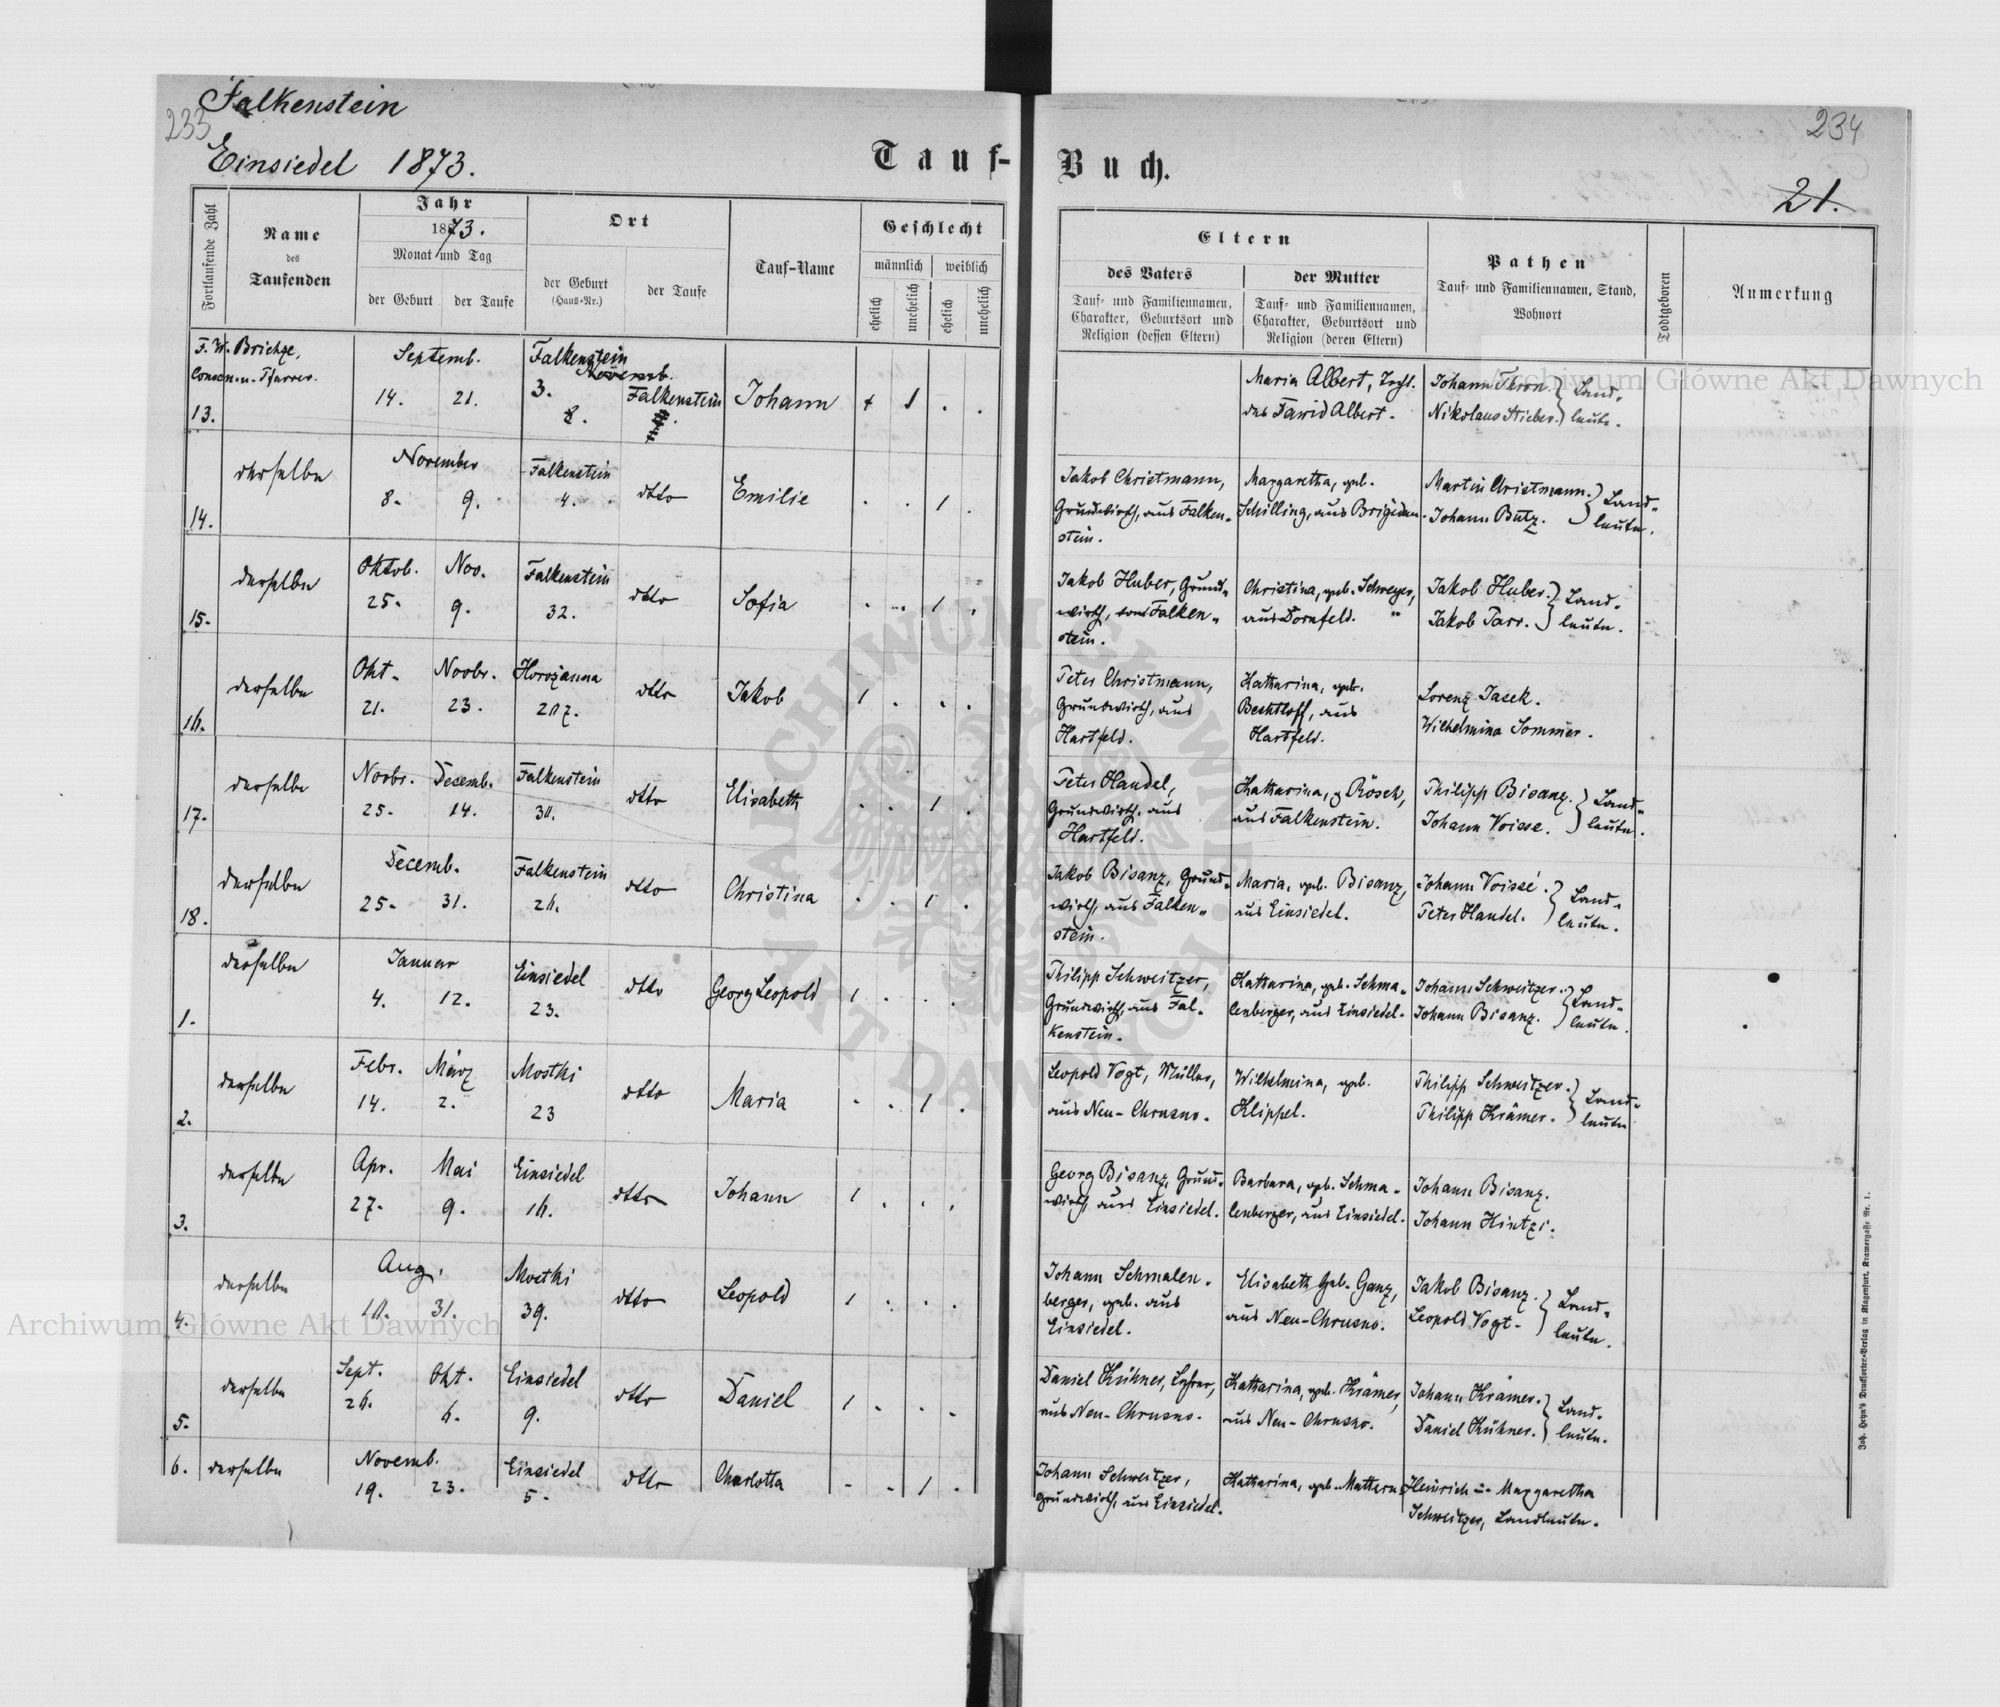 Falkenstein
233
Einsiedel 1873.
Tauf-
Buch.
234
21.
Fortlaufende Zahl
Name
des
Taufenden
Jahr
1873.
Monat und Tag
der Geburt
der Taufe
Ort
der Geburt
(Haus-Nr.)
der Taufe
Tauf-Name
Geschlecht
männlich
weiblich
ehelich
unehelich
ehelich
unehelich
Eltern
des Vaters
Tauf- und Familiennamen,
Charakter, Geburtsort und
Religion (dessen Eltern)
der Mutter
Tauf- und Familiennamen,
Charakter, Geburtsort und
Religion (deren Eltern)
Pathen
Tauf- und Familiennamen, Stand,
Wohnort
Todtgeboren
Anmerkung
13.
Septemb.
14. 21.
Falkenstein
Novemb.
3.
Falkenstein
Johann
1 . .
Maria Albert, Tocht.
des David Albert.
Johann Thron.
Nikolaus Stieber.
Land-
leute.
14.
derselbe
November
8. 9.
Falkenstein
4.
dtto
Emilie
. . 1 .
Jakob Christmann,
Grundwirth, aus Falken-
stein.
Margaretha, geb.
Schilling, aus Brigidau.
Martin Christmann.
Johann Butz.
Land-
leute.
15.
derselbe
Oktob. Nov.
25. 9.
Falkenstein
32.
dtto
Sofia
. . 1 .
Jakob Huber, Grund-
wirth, von Falken-
stein.
Christina, geb. Schweyer,
aus Dornfeld.
Jakob Huber.
Jakob Parr.
Land-
leute.
16.
derselbe
Okt. Novbr.
21. 23.
Horożanna
217.
dtto
Jakob
1 . . .
Peter Christmann,
Grundwirth, aus
Hartfeld.
Katharina, geb.
Bechtloff, aus
Hartfeld.
Lorenz Jasek.
Wilhelmina Sommer.
17.
derselbe
Novbr. Decemb.
25. 14.
Falkenstein
dtto
Elisabeth
. . 1 .
Peter Handel,
Grundwirth, aus
Hartfeld.
Katharina, g. Rösch,
aus Falkenstein.
Philipp Bisanz.
Johann Voisse.
Land-
leute.
18.
derselbe
Decemb.
25. 31.
Falkenstein
26.
dtto
Christina
. . 1 .
Jakob Bisanz, Grund-
wirth, aus Falken-
stein.
Maria, geb. Bisanz,
aus Einsiedel.
Johann Voissé.
Peter Handel.
Land-
leute.
1.
derselbe
Januar
4. 12.
Einsiedel
23.
dtto
Georg Leopold
1 . . .
Philipp Schweitzer,
Grundwirth, aus Fal-
kenstein.
Katharina, geb. Schma-
lenberger, aus Einsiedel.
Johann Schweitzer.
Johann Bisanz.
Land-
leute.
2.
derselbe
Febr. März
14. 2.
Mostki
23
dtto
Maria
. . 1 .
Leopold Vogt, Müller,
aus Neu-Chrusno.
Wilhelmina, geb.
Klippel.
Philipp Schweitzer.
Philipp Krämer.
Land-
leute
3.
derselbe
Apr. Mai
27. 9.
Einsiedel
16.
dtto
Johann
1 . . .
Georg Bisanz, Grund-
wirth, aus Einsiedel.
Barbara, geb. Schma-
lenberger, aus Einsiedel.
Johann Bisanz.
Johann Hintzi.
4.
derselbe
Aug.
31.
Mostki
39.
dtto
Leopold
1 . . .
Johann Schmalen-
berger, geb. aus
Einsiedel.
Elisabeth geb. Ganz,
aus Neu-Chrusno.
Jakob Bisanz.
Leopold Vogt.
Land-
leute.
5.
derselbe
Sept. Okt.
26. 6.
Einsiedel
9.
dtto
Daniel
1 . . .
Daniel Kühner, Lehrer,
aus Neu-Chrusno.
Katharina, geb. Krämer,
aus Neu-Chrusno.
Johann Krämer.
Daniel Kühner.
Land-
leute.
6.
derselbe
Novemb.
19. 23.
Einsiedel
5.
dtto
Charlotta
. . 1 .
Johann Schweitzer,
Grundwirth, aus Einsiedel.
Katharina, geb. Mattern
Heinrich u. Margaretha
Schweitzer, Landleute.
Joh. Heyn's Drucksorten-Verlag in Klagenfurt, Kramergasse Nr. 1.
Archiwum Główne Akt Dawnych
Archiwum Główne Akt Dawnych